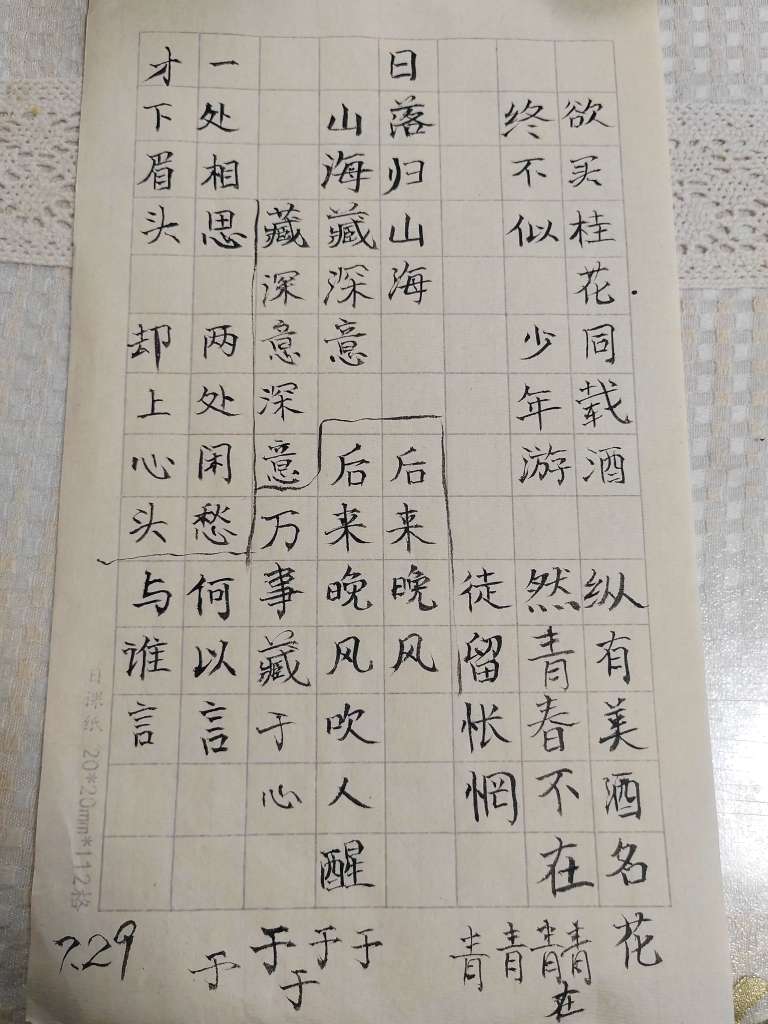 欲买桂花同载酒 纵有美酒名花
终不似 少年游 然青春不在
徒留怅惘
日落归山海 后来晚风
山海藏深意 后来晚风吹人醒
藏深意深意万事藏于心
一处相思 两处闲愁 何以言
才下眉头 却上心头 与谁言
青青青青
在
于于于于
于
7.29
日课纸 20*20mm*112格